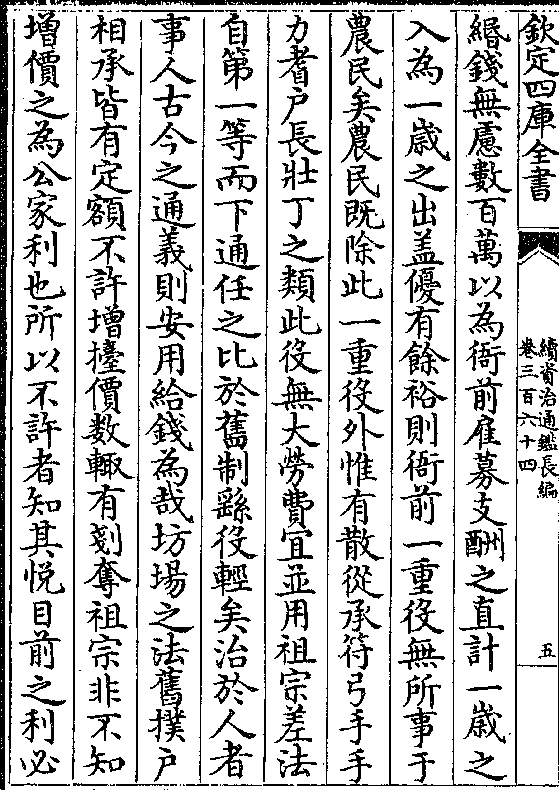 欽定四庫全書
續資治通鑑長編
卷三百六十四
五
緡錢無慮數百萬以為衙前雇募支酬之直計一歲之
入為一歲之出盖優有餘裕則衙前一重役無所事于
農民矣農民既除此一重役外惟有散從承符弓手手
力耆户長壯丁之類此役無大勞費宜並用祖宗差法
自第一等而下通任之比於舊制繇役輕矣治於人者
事人古今之通義則安用給錢為哉坊場之法舊撲户
相承皆有定額不許增擡價数輙有剗奪祖宗非不知
增價之為公家利也所以不許者知其悦目前之利必